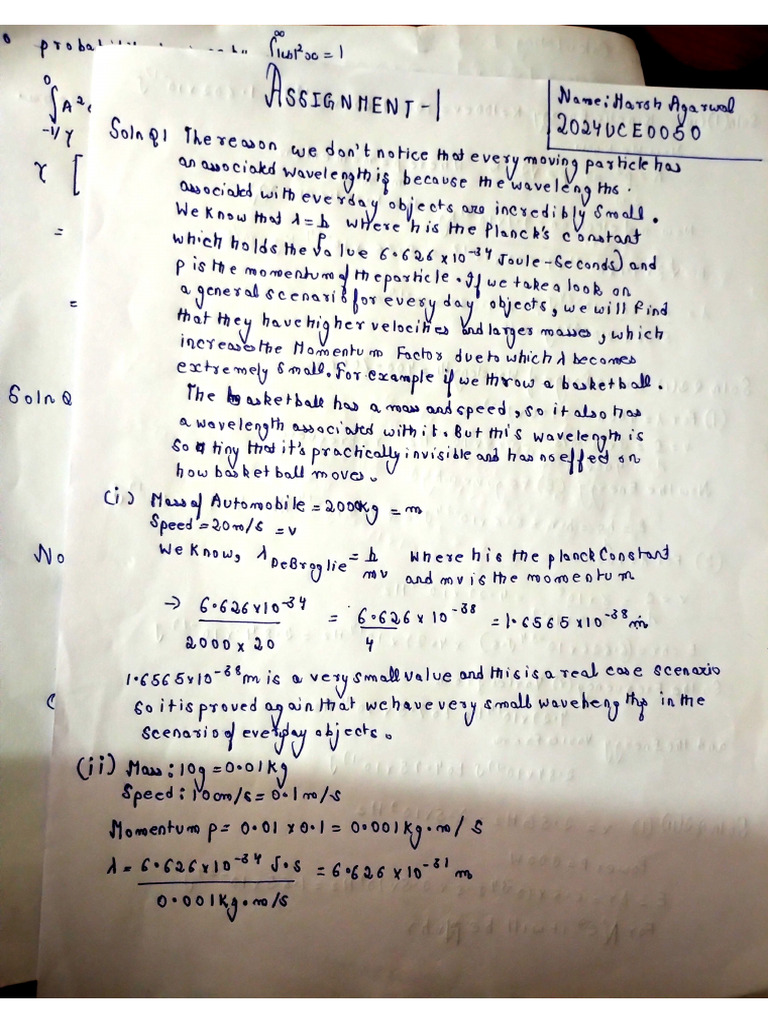 probabilit
∫|ψ|² ∞ = 1
∞
0
∫A²
-1/γ
γ [
=
=
Soln Q
No
ASSIGNMENT-1
Name: Harsh Agarwal
2024UCE0050
Soln Q1 The reason we don't notice that every moving particle has
an associated wavelength is because the wavelengths.
associated with everyday objects are incredibly small.
We know that λ=h/p where h is the Planck's constant
which holds the value 6.626x10⁻³⁴ Joule-Seconds) and
p is the momentum of the particle. If we take a look on
a general scenario for every day objects, we will find
that they have higher velocities and larger masses, which
increases the Momentum Factor due to which λ becomes
extremely small. For example if we throw a basketball.
The basketball has a mass and speed, so it also has
a wavelength associated with it. But this wavelength is
so tiny that it's practically invisible and has no effect on
how basketball moves.
(i) Mass of Automobile = 2000kg = m
Speed = 20m/s = v
We know, λ DeBroglie = h/mv where h is the planck Constant
and mv is the momentum
→ 6.626x10⁻³⁴ / 2000 x 20 = 6.626 x 10⁻³⁸ / 4 = 1.6565x10⁻³⁸ m
1.6565x10⁻³⁸ m is a very small value and this is a real case scenario
so it is proved again that we have very small wavelengths in the
scenario of everyday objects.
(ii) Mass: 10g = 0.01kg
Speed: 10cm/s = 0.1m/s
Momentum p = 0.01 x 0.1 = 0.001kg.m/s
λ = 6.626x10⁻³⁴ J.s / 0.001kg.m/s = 6.626 x 10⁻³¹ m